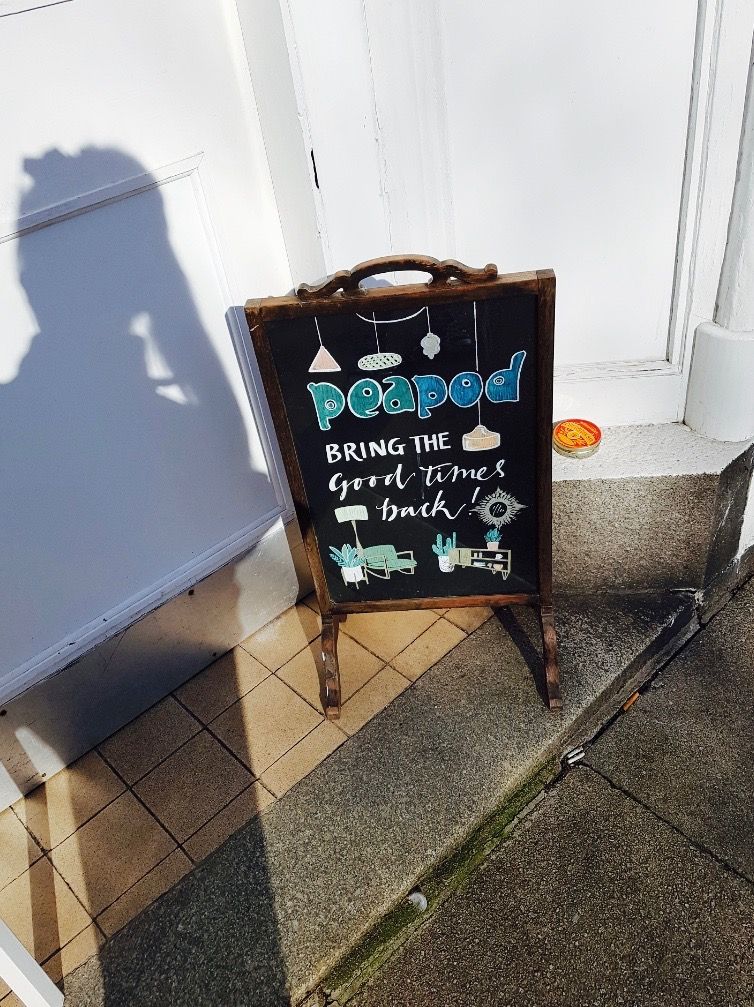 peapod
BRING THE
Good times
back!